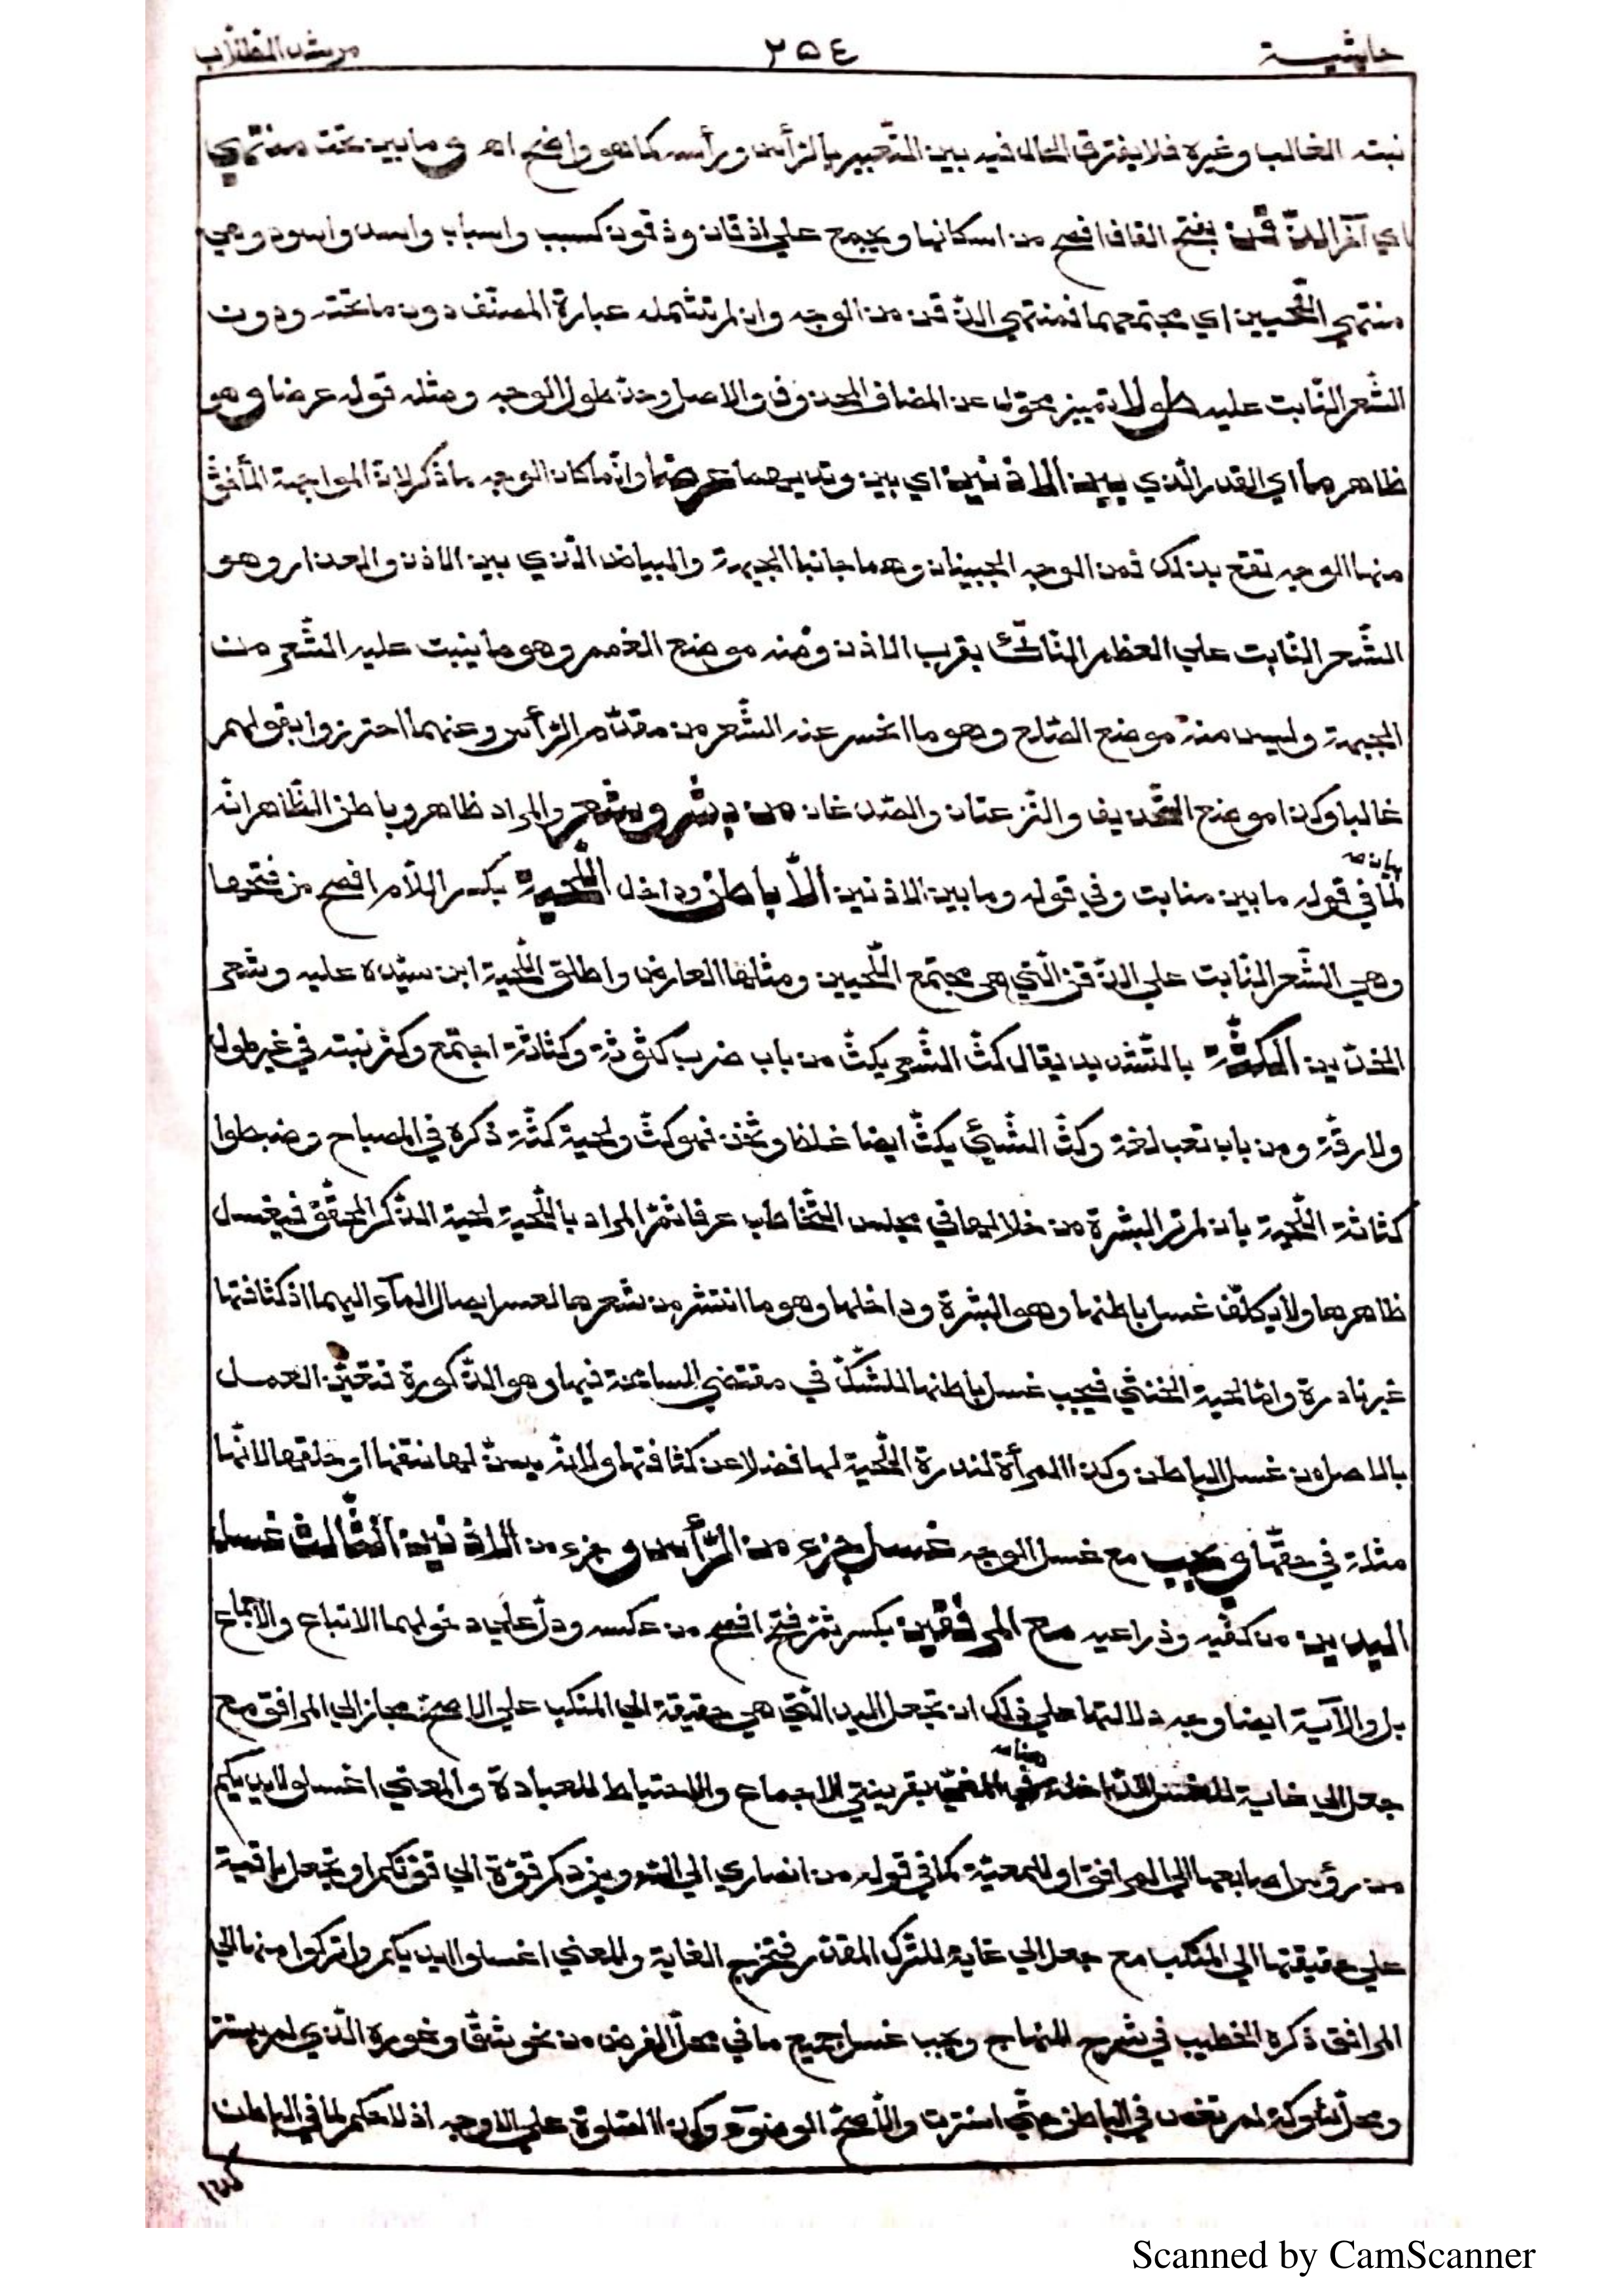 حاشية ٢٥٤ مرشد الطلاب
نبته الغالب وغيره فلا يفترق الحال فيه بين التعبير بالرأس ورأسه كما هو واضح اه وما بين تحت منتهي
اي آخر الذّقن بفتح القاف افصح من اسكانها ويجمع علي اذقان وذقون كسبب واسباب واسد واسود وهي
منتهي اللّحيين اي مجتمعهما فمنتهي الذّقن من الوجه وان لم تشمله عبارة المصنّف دون ما تحته ودون
الشّعر النّابت عليه طولا تمييز محوّل عن المضاف المحذوف والاصل وحدّ طول الوجه ومثله قوله عرضا وهو
ظاهر ما اي القدر الّذي بين الاذنين اي بين وتديهما عرضا وانّما كان الوجه ما ذكر لانّ المواجهة المأخوذ
منها الوجه تقع بذلك فمن الوجه الجبينان وهما جانبا الجبهة والبياض الّذي بين الاذن والعذار وهو
الشّعر النّابت علي العظم النّاتئ بقرب الاذن ومنه موضع الغمم وهو ما ينبت عليه الشّعر من
الجبهة وليس منه موضع الصّلع وهو ما انحسر عنه الشّعر من مقدّم الرّأس وعنهما احترزوا بقولهم
غالبا وكذا موضع التّحذيف والنّزعتان والصّدغان من بشر وشعر والمراد ظاهر وباطن الظّاهر انّه
بيان
لما في قوله ما بين منابت وفي قوله وما بين الاذنين الّا باطن وداخل اللّحية بكسر اللّام افصح من فتحها
وهي الشّعر النّابت علي الذّقن الّتي هي مجتمع اللّحيين ومثلها العارض واطلق اللّحية ابن سيّده عليه وشعر
الخدّين الكثّة بالتّشديد يقال كثّ الشّعر يكثّ من باب ضرب كثوثة وكثاثة اجتمع وكثر نبته في غير طول
ولا رقّة ومن باب تعب لغة وكثّ الشّيئ يكثّ ايضا غلظ وثخن فهو كثّ ولحية كثّة ذكره في المصباح وضبطوا
كثاثة اللّحية بان لم تر البشرة من خلالها في مجلس التّخاطب عرفا ثمّ المراد باللّحية لحية الذّكر المحقّق فيغسل
ظاهرها ولا يكلّف غسل باطنها وهو البشرة وداخلها وهو ما انتشر من شعرها لعسر ايصال المآء اليهما اذ كثافتها
غير نادرة وامّا لحية الخنثي فيجب غسل باطنها للشّكّ في مقتضي المسامحة فيها وهو الذّكورة فتعيّن العمل
بالاصل من غسل الباطن وكذا المرأة لندرة اللّحية لها فضلا عن كثافتها ولانّه يسنّ لها نتفها او حلقها لانّها
مثلة في حقّها ويجب مع غسل الوجه غسل جزء من الرّأس وجزء من الاذنين الثّالث غسل
اليدين من كفّيه وذراعيه مع المرفقين بكسر ثمّ فتح افصح من عكسه ودلّ علي دخولهما الاتباع والاجماع
بل والآية ايضا وجه دلالتها علي ذلك ان تجعل اليد الّتي هي حقيقة الي المنكب علي الاصحّ مجازا الي المرافق مع
جعل الي غاية للغسل الدّاخلة في المغيّا بقرينتي الاجماع والاحتياط للعبادة والمعني اغسلوا ايديكم
من رؤس اصابعها الي المرافق او للمعيّة كما في قوله من انصاري الي اللّه ويزدكم قوّة الي قوّتكم او تجعل باقية
علي حقيقتها الي المنكب مع جعل الي غاية للترك المقدّر فتخرج الغاية والمعني اغسلوا ايديكم واتركوا منها الي
المرافق ذكره الخطيب في شرح المنهاج ويجب غسل جميع ما في محلّ الفرض من نحو شقّ وغوره الّذي لم يستتر
ومحلّ شوكة لم تغص في الباطن حتّي استترت والّا صحّ الوضوء وكذا الصّلوة علي الاوجه اذ لا حكم لما في الباطن
Scanned by CamScanner